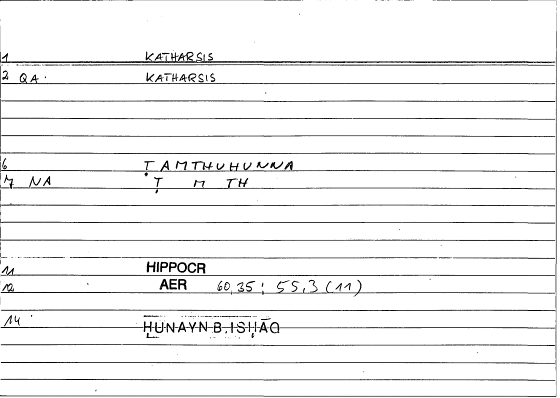 1 KATHARSIS
2 QA. KATHARSIS
6 ṬAMTHUHUNNA
7 NA Ṭ M TH
11 HIPPOCR
12 AER 60,35; 55,3 (11)
14 ḤUNAYN B. ISḤĀQ